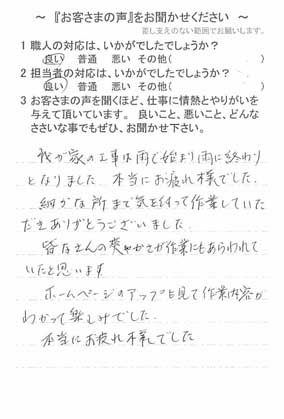 ～ 『お客さまの声』をお聞かせください ～
差し支えのない範囲でお願いします。
1 職人の対応は、いかがでしたでしょうか？
良い 普通 悪い その他( )
2 担当者の対応は、いかがでしたでしょうか？
良い 普通 悪い その他( )
3 お客さまの声を聞くほど、仕事に情熱とやりがいを
与えて頂いています。 良いこと、悪いこと、どんな
ささいな事でもぜひ、お聞かせ下さい。
我が家の工事は雨で始まり雨に終わり
となりました 本当にお疲れ様でした.
細かな所まで気を付って作業していた
だきありがとうございました
皆なさんの爽やかさが作業にもあらわれて
いたと思います
ホームページのアップを見て作業内容が
わかって楽しみでした.
本当にお疲れ様でした